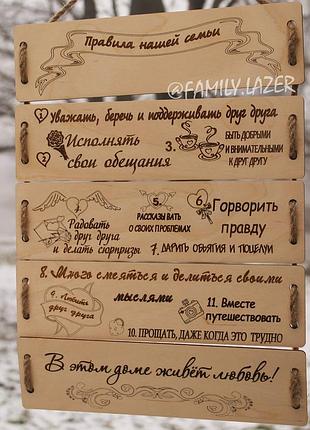 Правила нашей семьи
@FAMILY.LAZER
1. Уважать, беречь и поддерживать друг друга
2. Исполнять
свои обещания
3. БЫТЬ ДОБРЫМИ
И ВНИМАТЕЛЬНЫМИ
К ДРУГ ДРУГУ
4. Радовать
друг друга
и делать сюрпризы
5.
РАССКАЗЫВАТЬ
О СВОИХ ПРОБЛЕМАХ
6. Горворить
правду
7. ДАРИТЬ ОБЪЯТИЯ И ПОЦЕЛУИ
8. Много смеяться и делиться своими
мыслями
9. Любить
друг друга
11. Вместе
путешествовать
10. ПРОЩАТЬ, ДАЖЕ КОГДА ЭТО ТРУДНО
В этом доме живёт любовь!